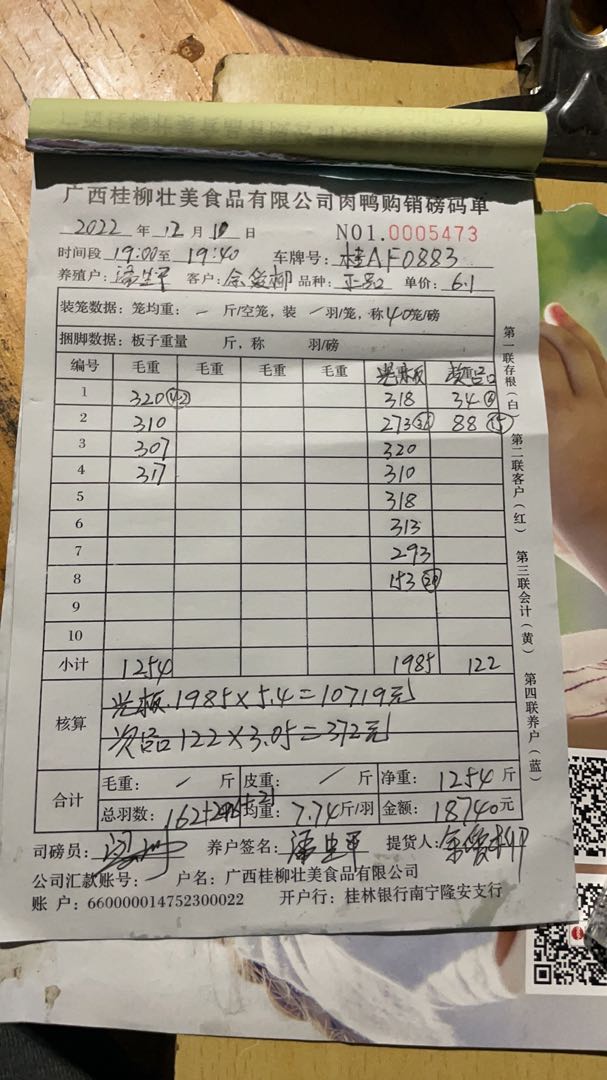 广西桂柳壮美食品有限公司肉鸭购销磅码单
2022 年 12 月 10 日 NO1.0005473
时间段 19:00至 19:40 车牌号: 桂AF0883
养殖户: 潘生平 客户: 余俊柳 品种: 单价: 6.1
装笼数据: 笼均重: 一 斤/空笼, 装 一 羽/笼, 称 40 笼/磅
捆脚数据: 板子重量 斤, 称 羽/磅
编号 毛重 毛重 毛重 毛重 光板 次品
1 320 (42) 318 34
2 310 273 88 (15)
3 307 320
4 317 310
5 318
6 313
7 293
8 153 (20)
9
10
小计 1254 1985 122
核算 光板.1985×5.4=10719元
次品122×3.05=372元
合计 毛重: / 斤 皮重: / 斤 净重: 1254 斤
总羽数: 162+ 均重: 7.74斤/羽 金额: 18740元
司磅员: 养户签名: 潘生平 提货人: 余俊柳
公司汇款账号: 户名: 广西桂柳壮美食品有限公司
账 户: 660000014752300022 开户行: 桂林银行南宁隆安支行
第一联存根(白)
第二联客户(红)
第三联会计(黄)
第四联养户(蓝)